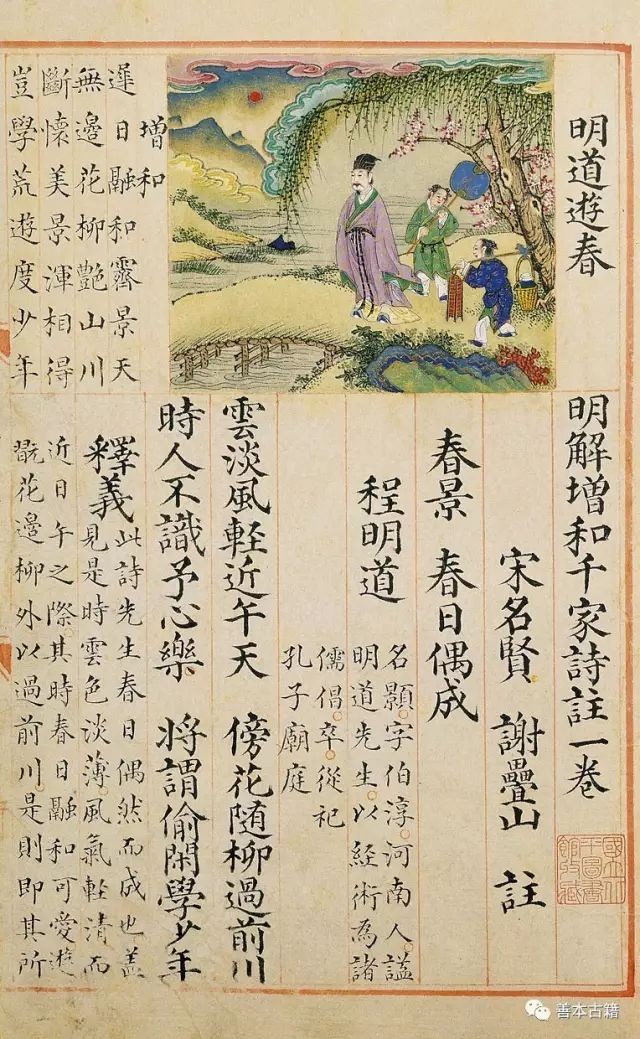 明道遊春
增和
遲日融和霽景天
無邊花柳艷山川
斷懷美景渾相得
豈學荒遊度少年
明解增和千家詩註一卷
國立北
平圖書
館收藏
宋名賢 謝疊山 註
春景 春日偶成
程明道
名顥。字伯淳。河南人。謚
明道先生。以經術為諸
儒倡。卒。從祀
孔子廟庭
雲淡風軽近午天 傍花随柳過前川
時人不識予心樂 将謂偷閑學少年
釋義 此詩先生春日偶然而成也盖
見是時雲色淡薄風氣軽清而
近日午之際。其時春日融和可愛遊
翫花邊柳外以過前川。是則即其所
善本古籍